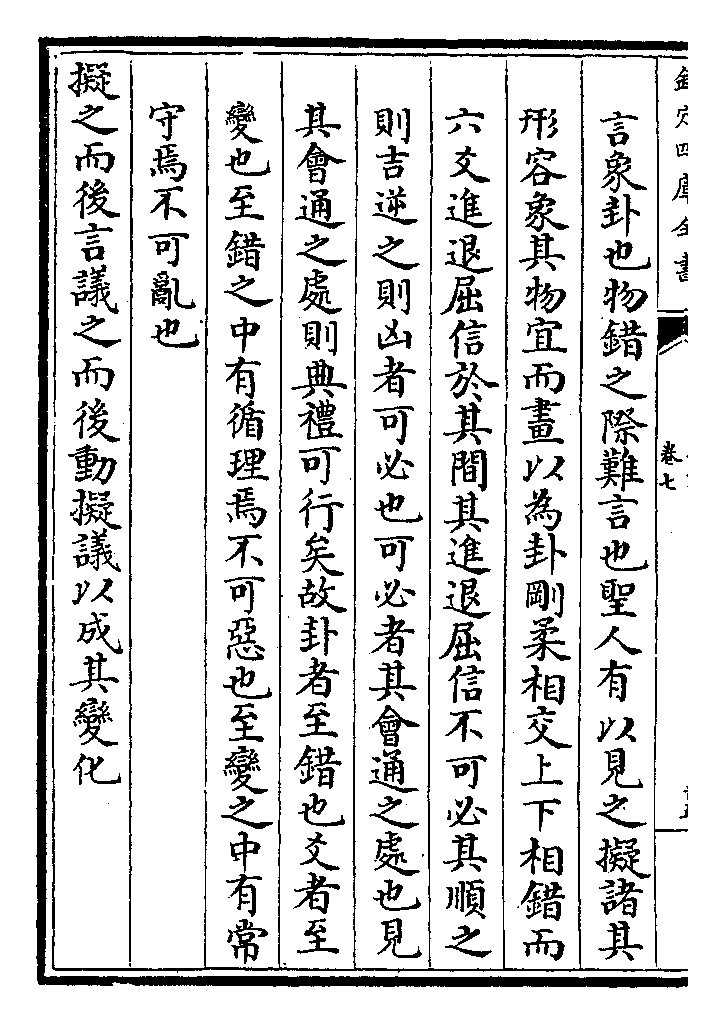 欽定四庫全書
卷七
言象卦也物錯之際難言也聖人有以見之擬諸其
形容象其物宜而畫以為卦剛柔相交上下相錯而
六爻進退屈信於其間其進退屈信不可必其順之
則吉逆之則凶者可必也可必者其會通之處也見
其會通之處則典禮可行矣故卦者至錯也爻者至
變也至錯之中有循理焉不可惡也至變之中有常
守焉不可亂也
擬之而後言議之而後動擬議以成其變化